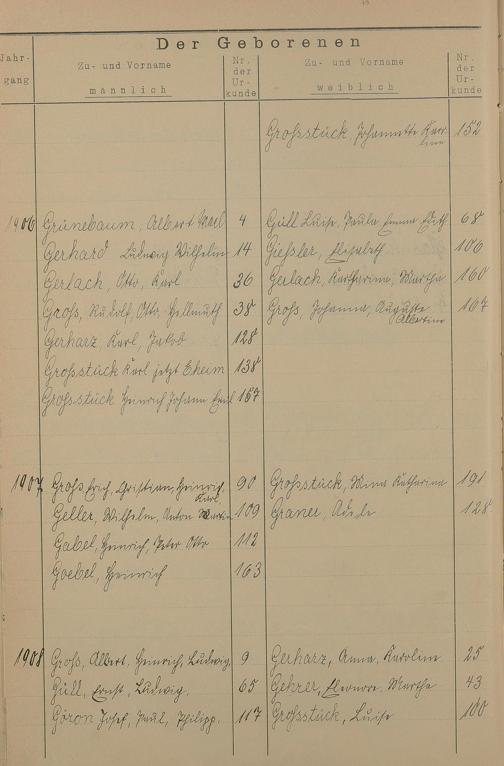 Der Geborenen
Jahr-
gang
Zu- und Vorname
männlich
Nr.
der
Ur-
kunde
Zu- und Vorname
weiblich
Nr.
der
Ur-
kunde
Großstück, Johannette Karo-
line 152
1906 Grünebaum, Albert Karl 4 Güll Luise, Paula Emma Ruth 68
Gerhard Ludwig Wilhelm 14 Gießler, Elisabeth 106
Gerlach, Otto, Karl 36 Gerlach, Katharina, Martha 160
Groß, Rudolf, Otto, Hellmuth 38 Groß, Johanna, Auguste 167
Albertine
Gerharz, Karl, Jakob 128
Großstück Karl jetzt Eheim 138
Großstück Heinrich Johann Emil 157
1907 Groß, Erich, Christian, Heinrich, 90 Großstück, Mina Katharina 191
Karl
Geller, Wilhelm, Anton Martin 109 Graner, Adele 128
Gabel, Heinrich, Peter Otto 112
Goebel, Heinrich 163
1908 Groß, Albert, Heinrich, Ludwig. 9 Gerharz, Anna, Karoline 25
Güll, Ernst, Ludwig. 65 Gehrer, Eleonore, Martha 43
Göron Josef, Paul, Philipp. 117 Großstück, Luise 100